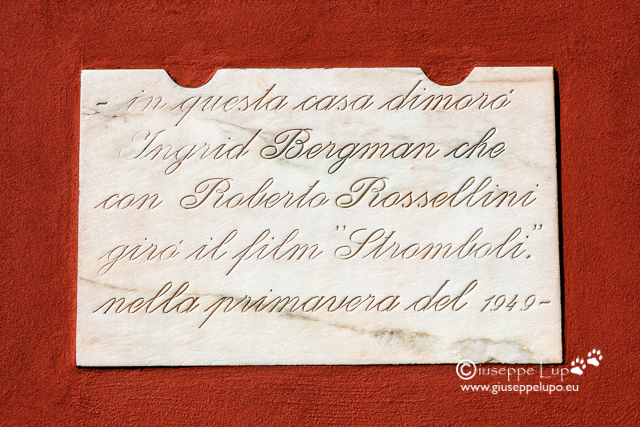 - in questa casa dimorò
Ingrid Bergman che
con Roberto Rossellini
girò il film "Stromboli."
nella primavera del 1949-
©Giuseppe Lupo
www.giuseppelupo.eu